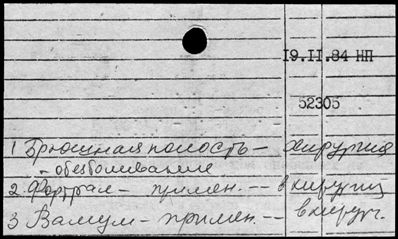 19.II.84 НП
52305
1 Брюшная полость – хирургия
+ обезболивание
2. Фортрал – примен. – в хирургии
3 Валиум – примен. – в хирург.